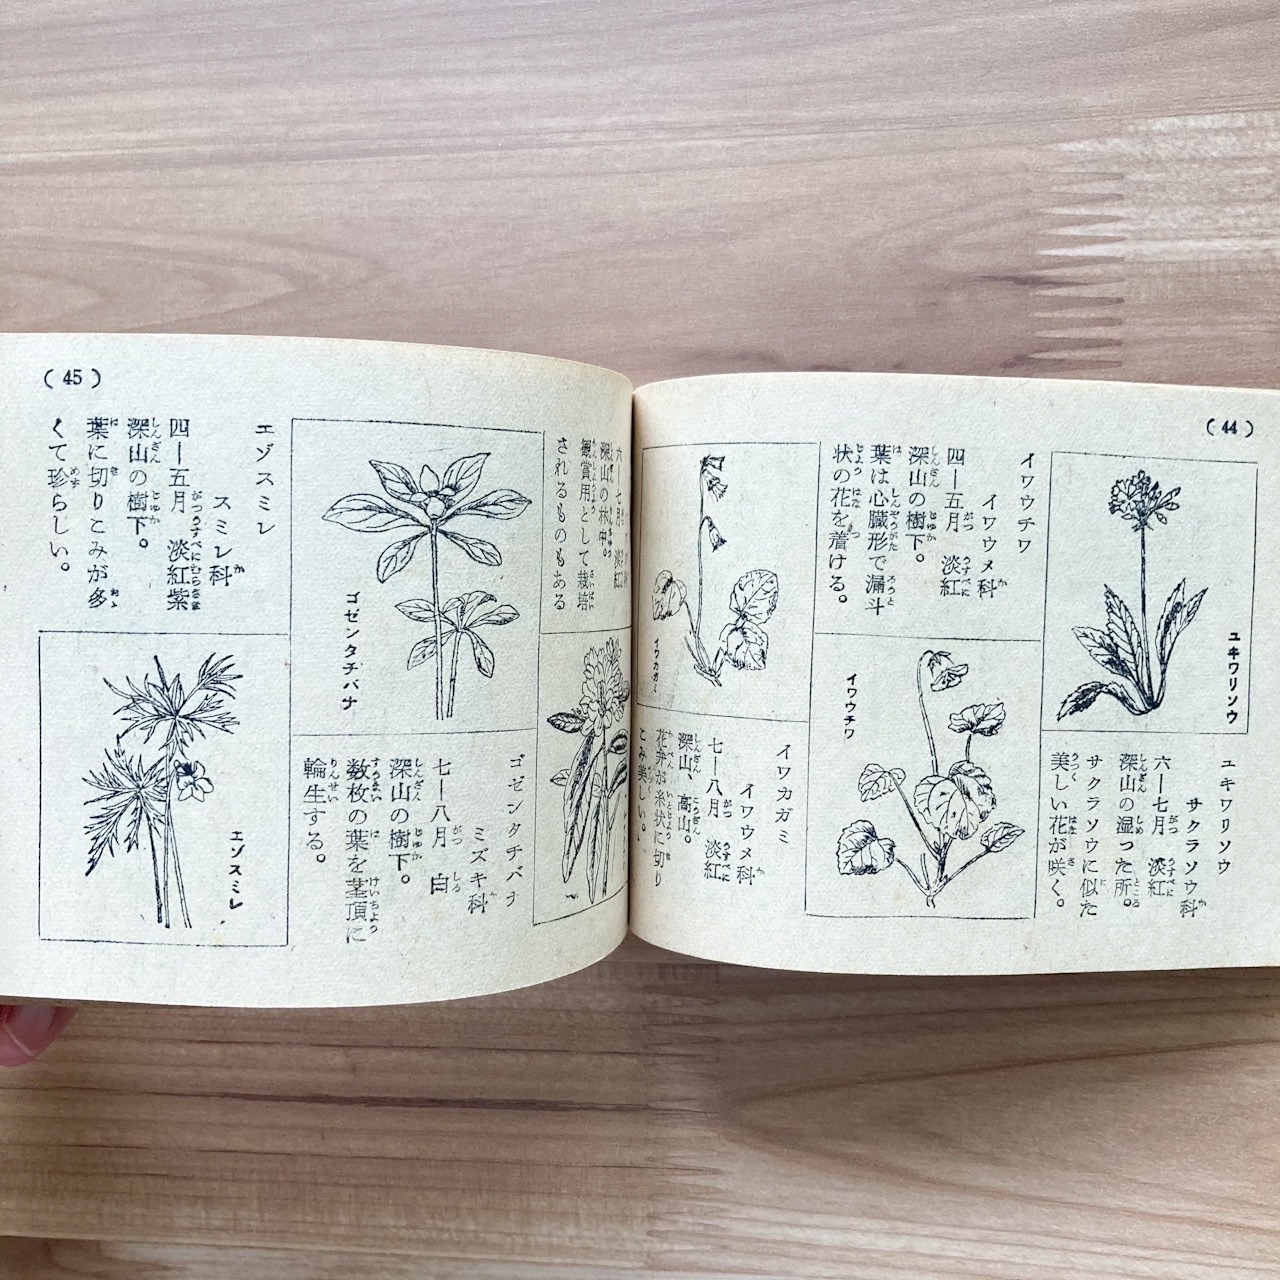 (44)
ユキワリソウ
ユキワリソウ
サクラソウ科
六―七月 淡紅
深山の湿った所。
サクラソウに似た
美しい花が咲く。
イワウチワ
イワウメ科
四―五月 淡紅
深山の樹下。
葉は心臓形で漏斗
状の花を着ける。
イワウチワ
イワカガミ
イワカガミ
イワウメ科
七―八月 淡紅
深山、高山。
花弁が糸状に切り
こみ美しい。
(45)
六―七月 淡紅
深山の林中。
観賞用として栽培
されるものもある
ゴゼンタチバナ
ゴゼンタチバナ
ミズキ科
七―八月 白
深山の樹下。
数枚の葉を茎頂に
輪生する。
エゾスミレ
スミレ科
四―五月 淡紅紫
深山の樹下。
葉に切りこみが多
くて珍らしい。
エゾスミレ